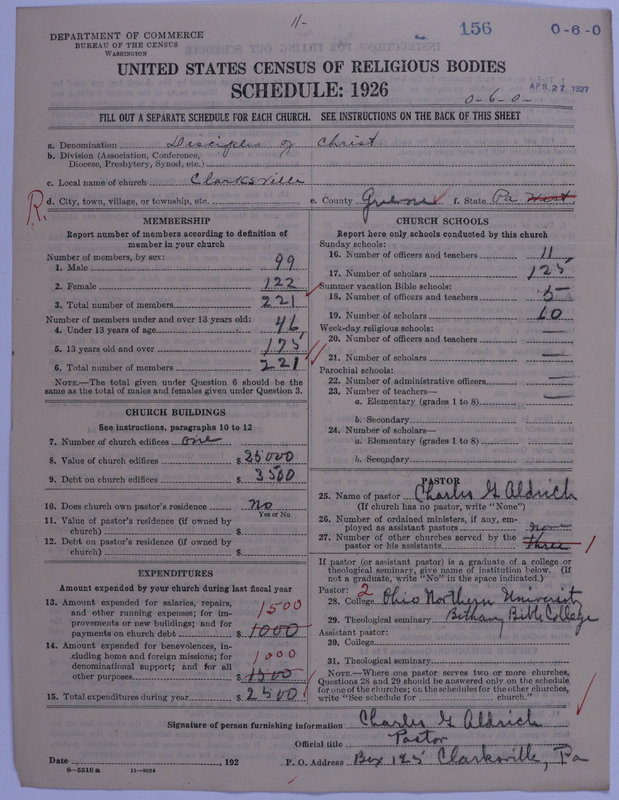 11-
156
0-6-0
DEPARTMENT OF COMMERCE
BUREAU OF THE CENSUS
WASHINGTON
UNITED STATES CENSUS OF RELIGIOUS BODIES
SCHEDULE: 1926
APR 27 1927
0-6-0-
FILL OUT A SEPARATE SCHEDULE FOR EACH CHURCH. SEE INSTRUCTIONS ON THE BACK OF THIS SHEET
a. Denomination Disciples of Christ
b. Division (Association, Conference,
Diocese, Presbytery, Synod, etc.)
c. Local name of church Clarksville
R.
d. City, town, village, or township, etc. e. County Greene f. State Pa
MEMBERSHIP
Report number of members according to definition of
member in your church
Number of members, by sex:
1. Male 99
2. Female 122
3. Total number of members 221
Number of members under and over 13 years old:
4. Under 13 years of age 46
5. 13 years old and over 175
6. Total number of members 221
NOTE.—The total given under Question 6 should be the
same as the total of males and females given under Question 3.
CHURCH BUILDINGS
See instructions, paragraphs 10 to 12
7. Number of church edifices one
8. Value of church edifices $ 25000
9. Debt on church edifices $ 3500
10. Does church own pastor's residence No
Yes or No
11. Value of pastor's residence (if owned by
church) $
12. Debt on pastor's residence (if owned by
church) $
EXPENDITURES
Amount expended by your church during last fiscal year
13. Amount expended for salaries, repairs,
and other running expenses; for im-
provements or new buildings; and for
payments on church debt $ 1000
1500
14. Amount expended for benevolences, in-
cluding home and foreign missions; for
denominational support; and for all
other purposes $ 1500
1000
15. Total expenditures during year $ 2500
CHURCH SCHOOLS
Report here only schools conducted by this church
Sunday schools:
16. Number of officers and teachers 11
17. Number of scholars 125
Summer vacation Bible schools:
18. Number of officers and teachers 5
19. Number of scholars 60
Week-day religious schools:
20. Number of officers and teachers —
21. Number of scholars —
Parochial schools:
22. Number of administrative officers —
23. Number of teachers—
a. Elementary (grades 1 to 8) —
b. Secondary
24. Number of scholars—
a. Elementary (grades 1 to 8)
b. Secondary
PASTOR
25. Name of pastor Charles G Aldrich
(If church has no pastor, write "None")
26. Number of ordained ministers, if any, em-
ployed as assistant pastors none
27. Number of other churches served by the
pastor or his assistants three 1
If pastor (or assistant pastor) is a graduate of a college or
theological seminary, give name of institution below. (If
not a graduate, write "No" in the space indicated.)
Pastor: 2
28. College Ohio Northern Universit
29. Theological seminary Bethany Bible College
Assistant pastor:
30. College
31. Theological seminary
NOTE.—Where one pastor serves two or more churches,
Questions 28 and 29 should be answered only on the schedule
for one of the churches; on the schedules for the other churches,
write "See schedule for church."
Signature of person furnishing information Charles G Aldrich
Official title Pastor
Date , 192 P. O. Address Box 125 Clarksville, Pa
8-5518 a 11-9054